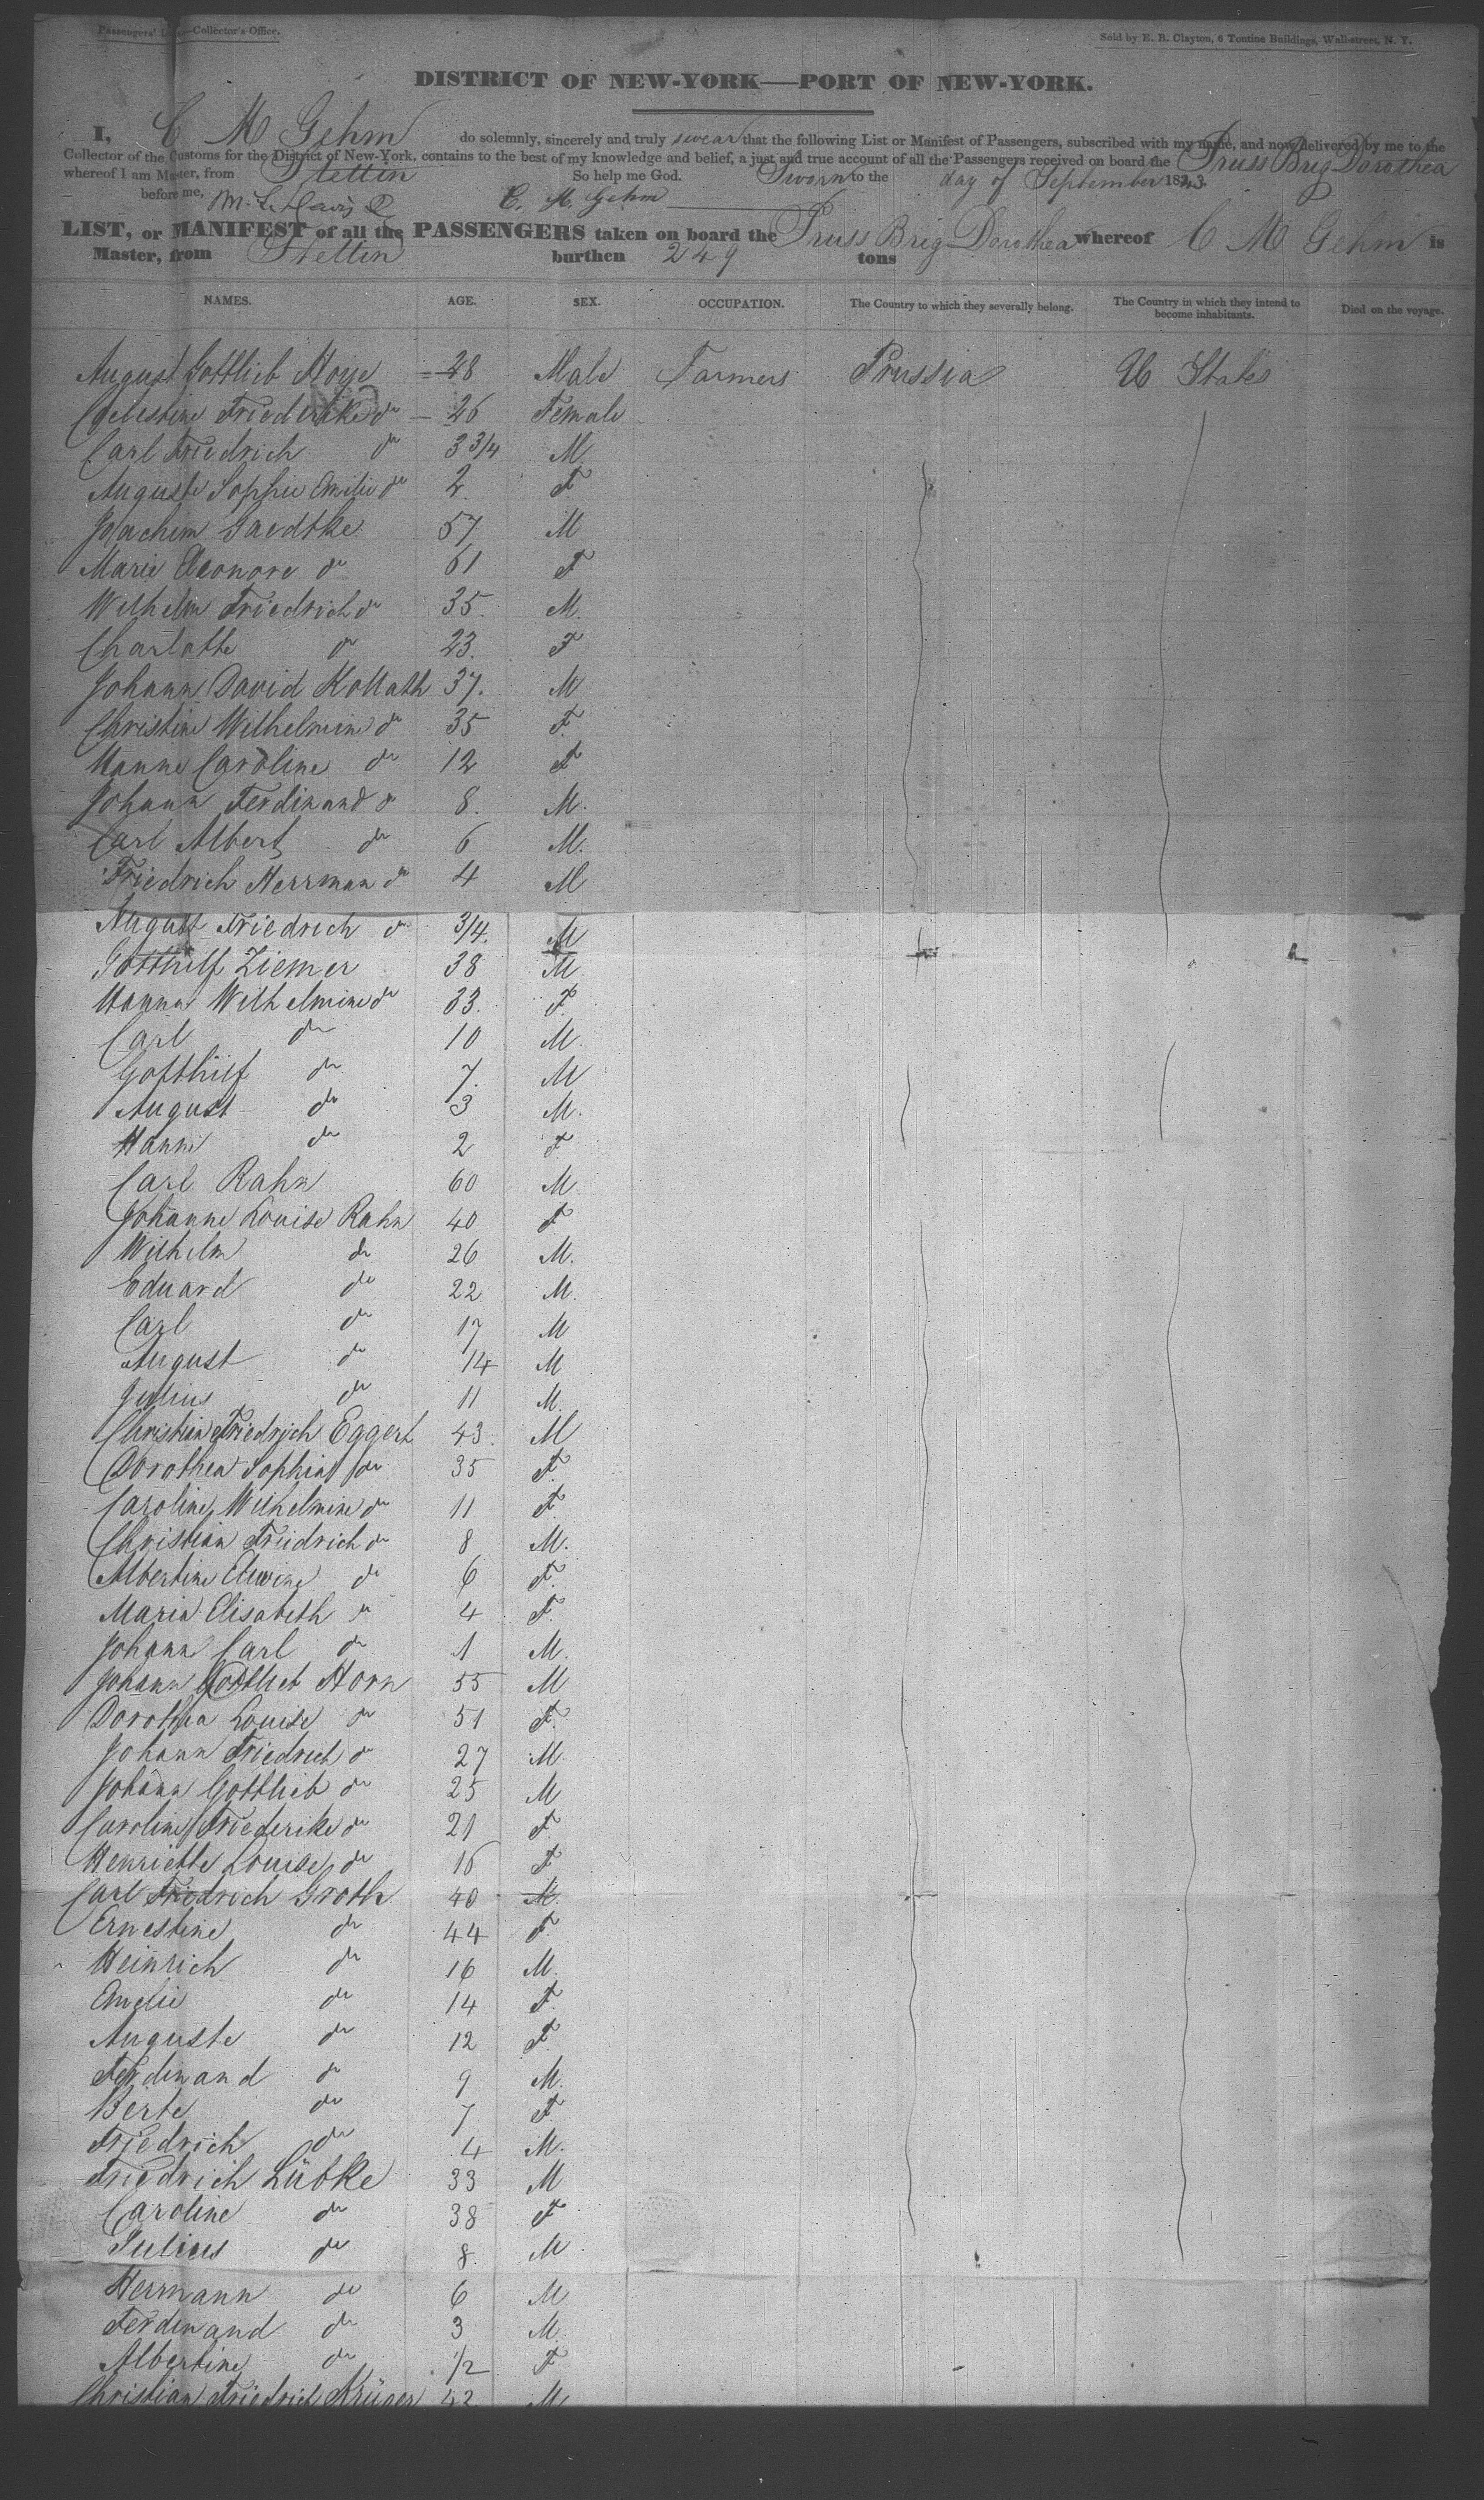 Passengers' List—Collector's Office.
Sold by E. B. Clayton, 6 Tontine Buildings, Wall-street, N. Y.
DISTRICT OF NEW-YORK—PORT OF NEW-YORK.
I, C M Gehm do solemnly, sincerely and truly swear that the following List or Manifest of Passengers, subscribed with my name, and now delivered by me to the
Collector of the Customs for the District of New-York, contains to the best of my knowledge and belief, a just and true account of all the Passengers received on board the Pruss Brig Dorothea
whereof I am Master, from Stettin So help me God. Sworn to the day of September 1843.
before me, C. M. Gehm
LIST, or MANIFEST of all the PASSENGERS taken on board the Pruss Brig Dorothea whereof C M Gehm is
Master, from Stettin burthen 249 tons
NAMES. AGE. SEX. OCCUPATION. The Country to which they severally belong. The Country in which they intend to become inhabitants. Died on the voyage.
August Gottlieb 28 Male Farmers Prussia U States
Friederike do 26 Female
Carl Friedrich do 3 3/4 M
Auguste Sophie Emilie do 2. F
Joachim Gaedtke 57 M
Marie Eleonore do 61 F
Wilhelm Friedrich do 35. M.
Charlotte do 23. F
Johann David Kollath 37. M
Christine Wilhelmine do 35 F.
Hanne Caroline do 12 F
Johann Ferdinand do 8. M.
Carl Albert do 6 M.
Friedrich Herrman do 4 M
August Friedrich do 3/4. M
Gotthilf Ziemer 38 M
Hanna Wilhelmine do 33. F.
Carl do 10 M.
Gotthilf do 7. M
August do 3 M.
Hanne do 2 F
Carl Rahn 60 M
Johanne Louise Rahn 40 F
Wilhelm do 26 M.
Eduard do 22 M.
Carl do 17 M
August do 14 M
Julius do 11 M.
Christian Friedrich Eggert 43. M
Dorothea Sophia do 35 F.
Caroline Wilhelmine do 11 F.
Christian Friedrich do 8 M.
Albertine do 6 F.
Maria Elisabeth do 4 F.
Johann Carl do 1 M.
Johann Gottlieb Horn 55 M
Dorothea Louise do 51 F.
Johann Friedrich do 27 M.
Johann Gottlieb do 25 M
Caroline Friederike do 21 F
Henriette Louise do 16 F
Carl Friedrich Groth 40 M.
Ernestine do 44 F
Heinrich do 16 M.
Emelie do 14 F.
Auguste do 12 F.
Ferdinand do 9 M.
Berte do 7 F
Friedrich do 4 M.
Friedrich Lübke 33 M
Caroline do 38 F
Julius do 8. M
Hermann do 6 M
Ferdinand do 3 M.
Albertine do 1/2 F
Christian Friedrich Krüger 42 M